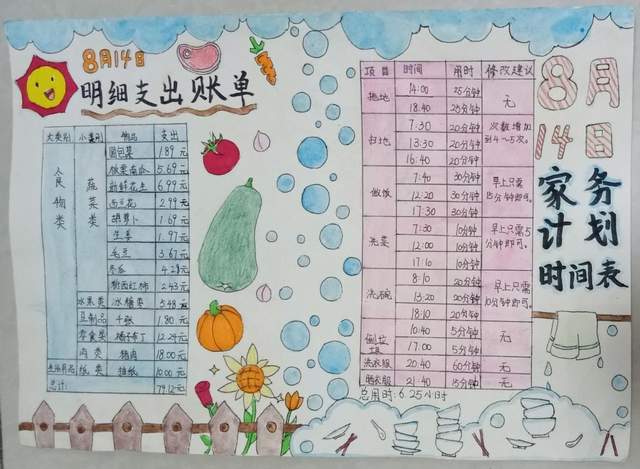 8月14日
明细支出账单
大类别 小类别 物品 支出
食物类 蔬菜类 圆包菜 1.89元
板栗南瓜 5.69元
新鲜花生 6.99元
西兰花 2.99元
胡萝卜 1.69元
生姜 1.97元
毛豆 3.67元
冬瓜 4.28元
粉西红柿 2.43元
水果类 冰糖类 5.48元
豆制品 千张 1.80元
零食类 橘子布丁 12.24元
肉类 猪肉 18.00元
生活用品 纸类 抽纸 10.00元
总计: 79.12元
项目 时间 用时 修改建议
拖地 14:00 25分钟 无
18:40 25分钟
扫地 7:30 20分钟 次数增加到4~5次。
13:30 20分钟
16:40 20分钟
做饭 7:40 30分钟 早上只需15分钟即可。
12:20 30分钟
17:30 30分钟
洗菜 7:30 10分钟 早上只需5分钟即可。
12:00 10分钟
17:10 10分钟
洗碗 8:10 20分钟 早上只需10分钟即可。
13:20 20分钟
18:10 20分钟
倒垃圾 10:40 5分钟 无
17:00 5分钟
洗衣服 20:40 60分钟 无
晒衣服 21:40 15分钟 无
总用时:6.25小时
8月
14日
家务
计划
时间表